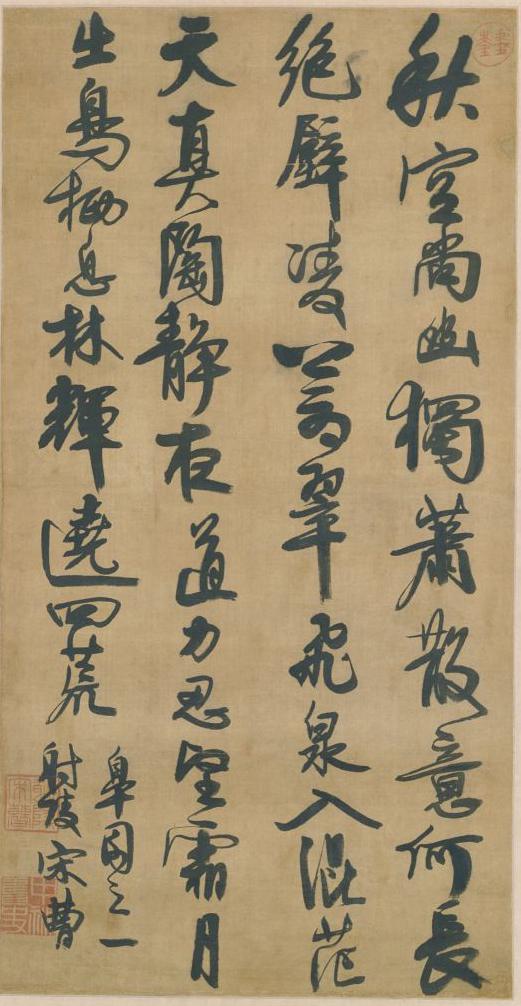 秋尚幽獨蕭散意何長
絕壁凌蒼翠飛泉入混茫
天真陶靜夜道力忍堅霜月
出鳥栖息林輝遶四荒
皋園之一
射陵宋曹